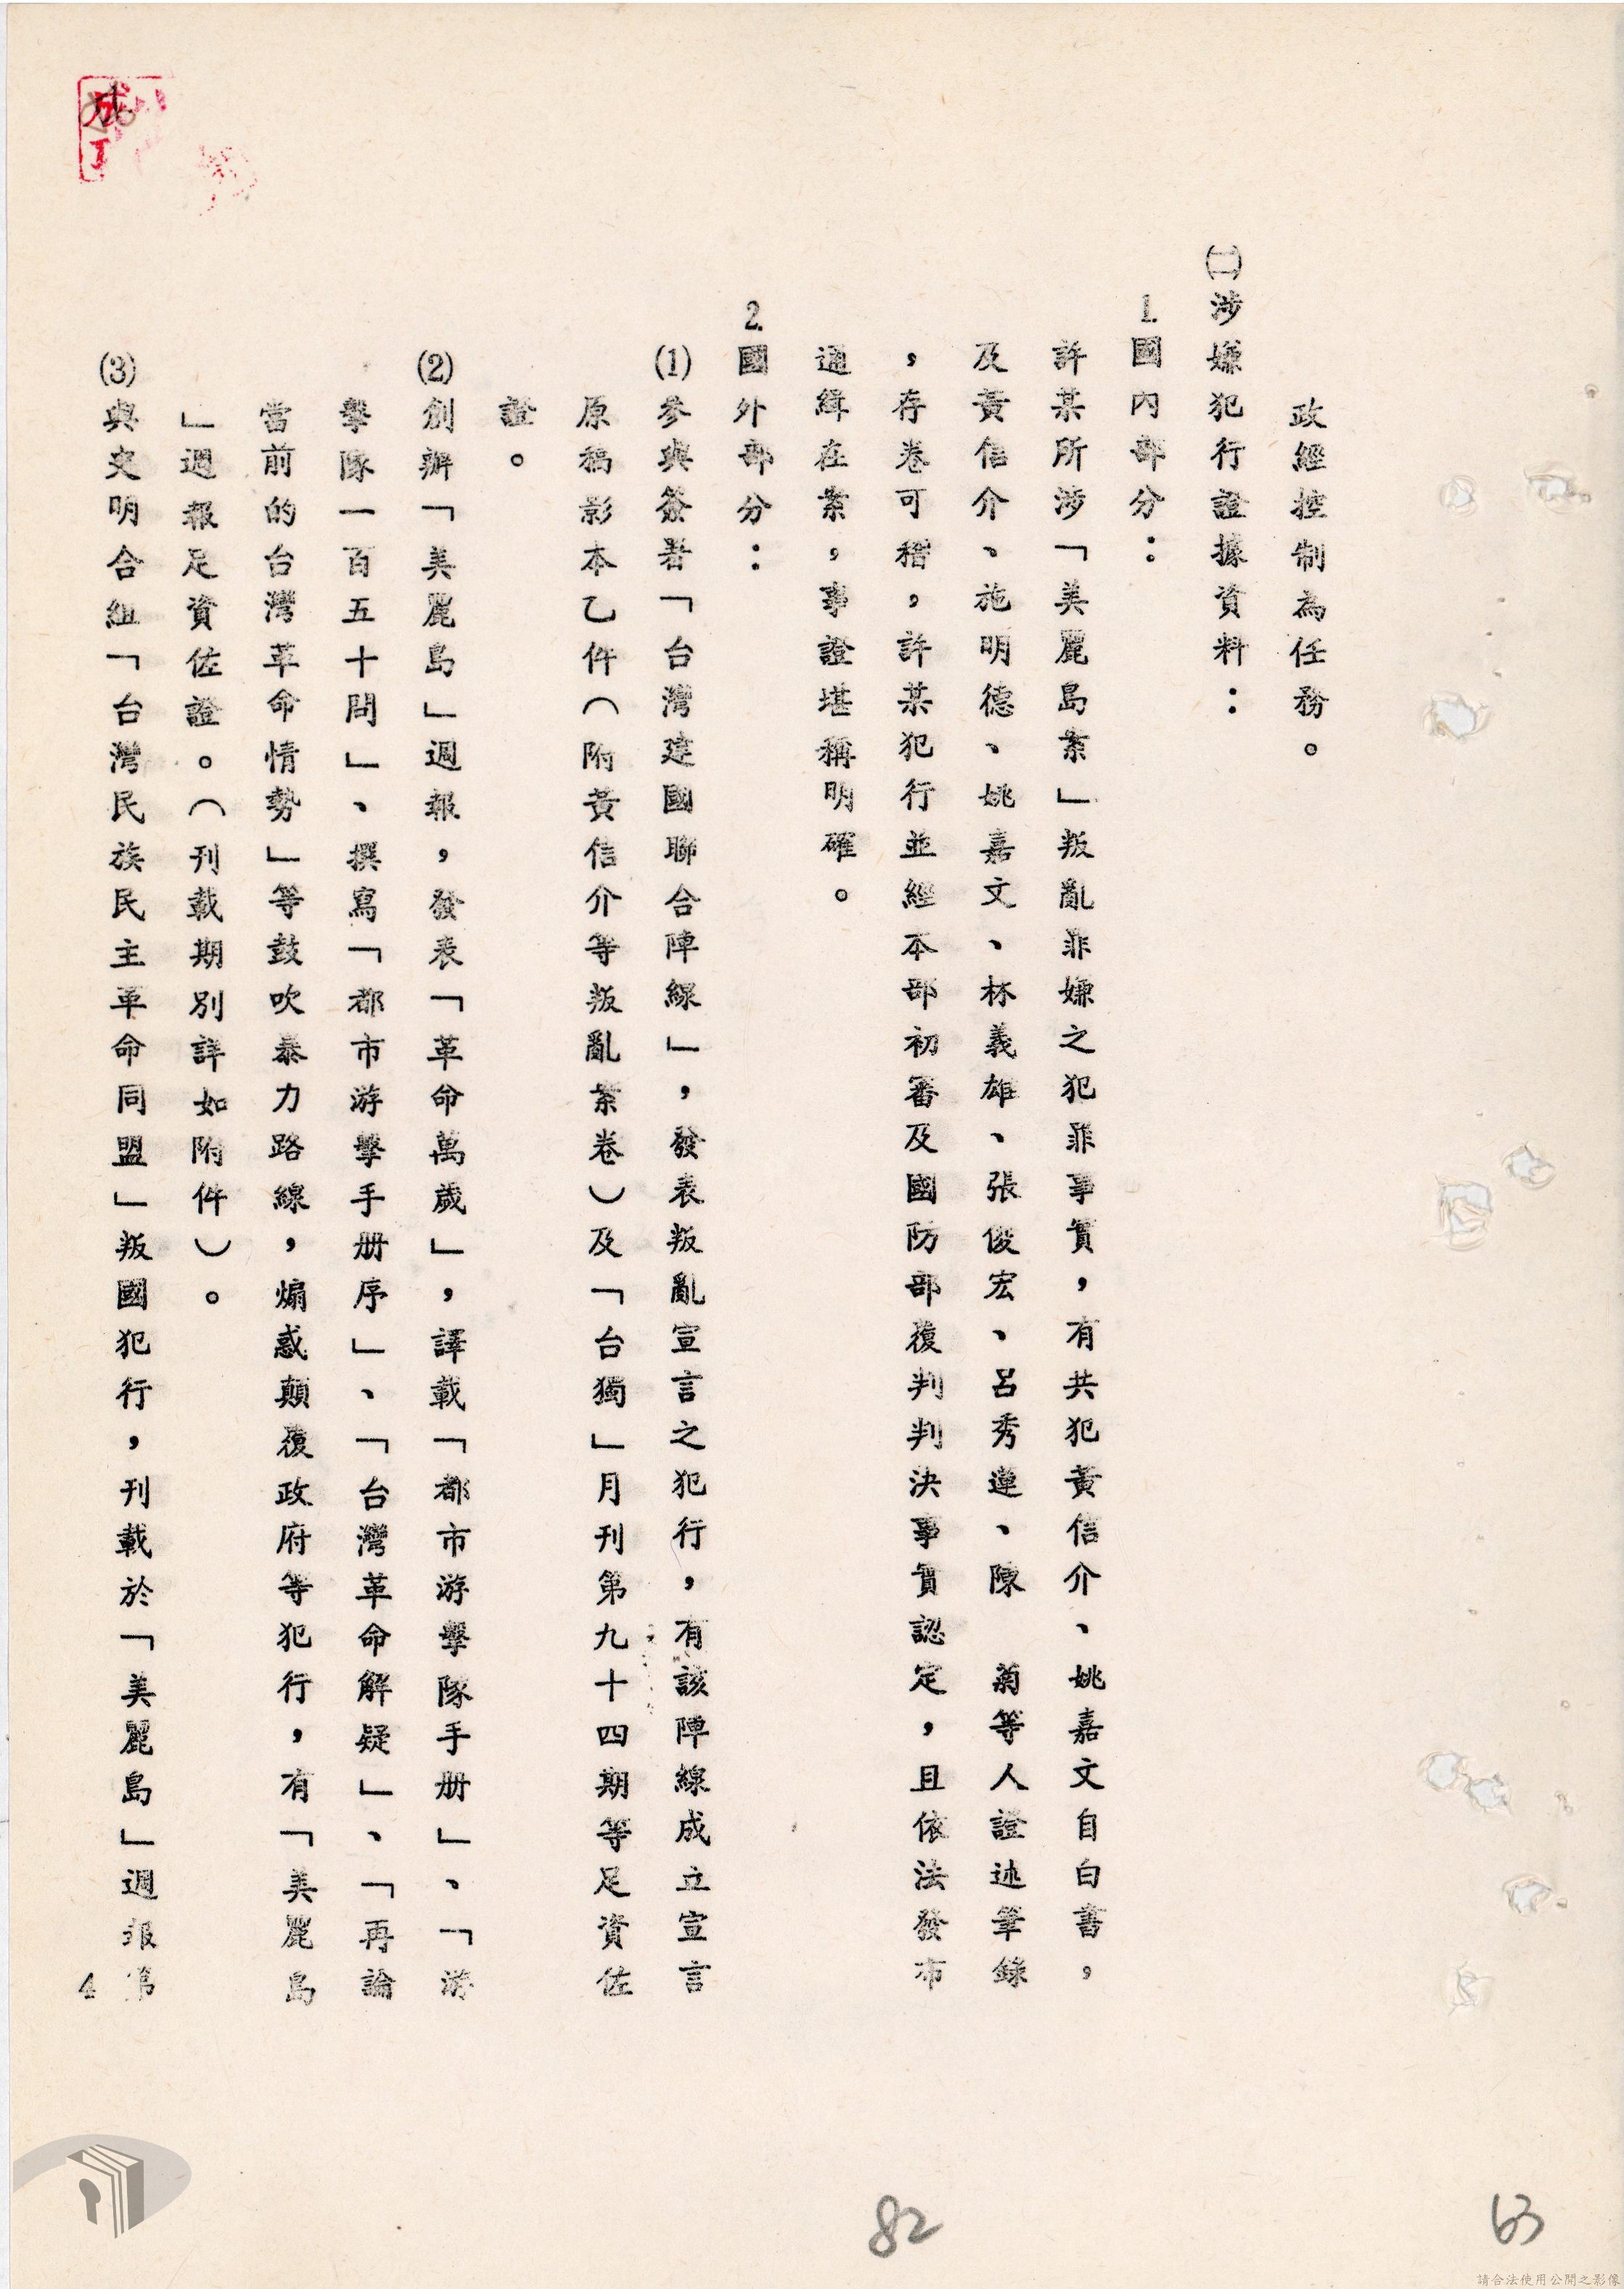 政經控制為任務。
㈡涉嫌犯行證據資料：
1.國內部分：
許某所涉「美麗島案」叛亂罪嫌之犯罪事實，有共犯黃信介、姚嘉文自白書，
及黃信介、施明德、姚嘉文、林義雄、張俊宏、呂秀蓮、陳　菊等人證述筆錄
，存卷可稽，許某犯行並經本部初審及國防部復判判決事實認定，且依法發布
通緝在案，事證堪稱明確。
2.國外部分：
(1)參與簽署「台灣建國聯合陣線」，發表叛亂宣言之犯行，有該陣線成立宣言
原稿影本乙件（附黃信介等叛亂案卷）及「台獨」月刊第九十四期等足資佐
證。
(2)創辦「美麗島」週報，發表「革命萬歲」，譯載「都市游擊隊手册」、「游
擊隊一百五十問」、撰寫「都市游擊手册序」、「台灣革命解疑」、「再論
當前的台灣革命情勢」等鼓吹暴力路線，煽惑顛覆政府等犯行，有「美麗島
」週報足資佐證。（刊載期別詳如附件）。
(3)與史明合組「台灣民族民主革命同盟」叛國犯行，刊載於「美麗島」週報第
4
82
63
請合法使用公開之影像